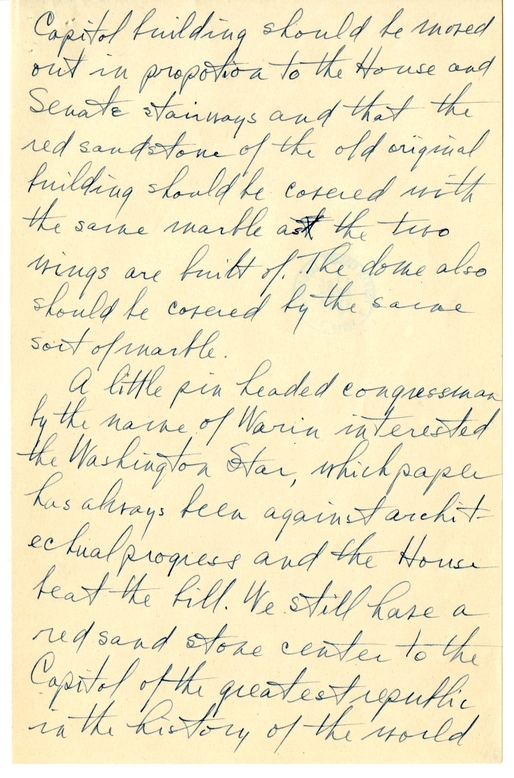 Capitol building should be moved
out in propotion to the House and
Senate stairways and that the
red sandstone of the old original
building should be covered with
the same marble as the two
wings are built of. The dome also
should be covered by the same
sort of marble.
A little pin headed congressman
by the name of Warin interested
the Washington Star, which paper
has always been against archit-
ectual progress and the House
beat the bill. We still have a
red sand stone center to the
Capitol of the greatest republic
in the history of the world